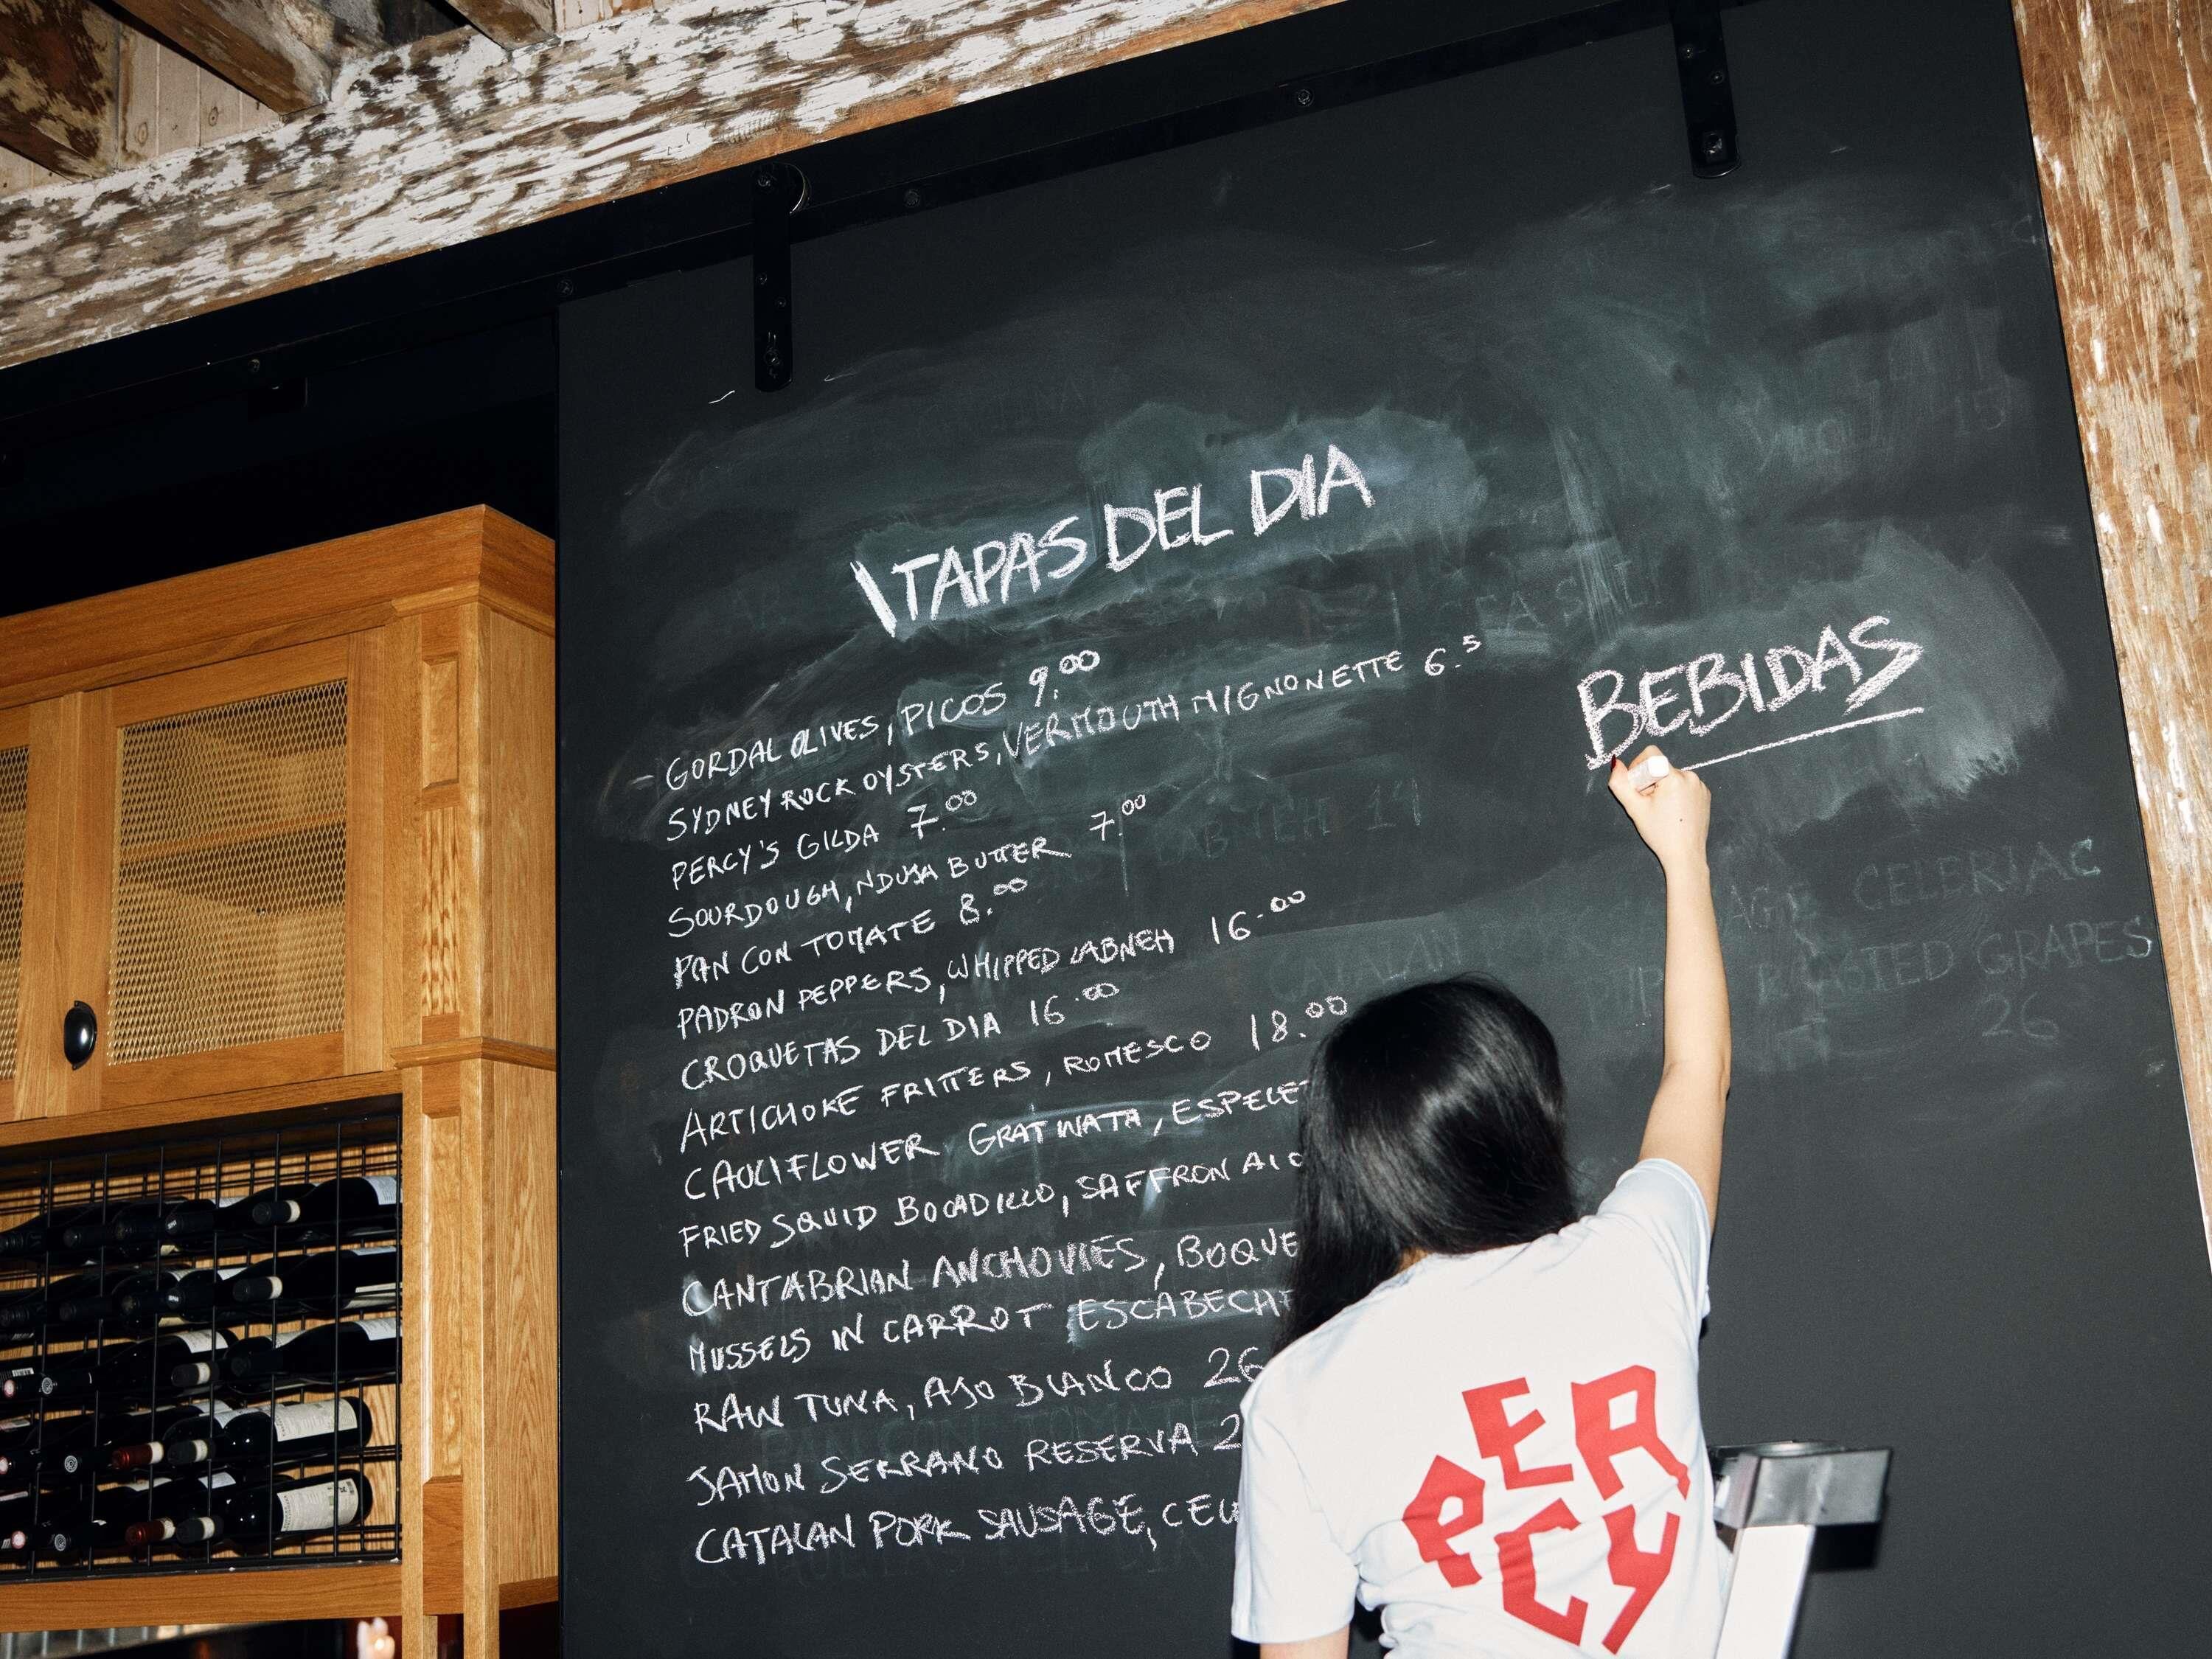 TAPAS DEL DIA
- GORDAL OLIVES, PICOS 9.00
SYDNEY ROCK OYSTERS, VERMOUTH MIGNONETTE 6.5
PERCY'S GILDA 7.00
SOURDOUGH, NDUJA BUTTER 7.00
PAN CON TOMATE 8.00
PADRON PEPPERS, WHIPPED LABNEH 16.00
CROQUETAS DEL DIA 16.00
ARTICHOKE FRITTERS, ROMESCO 18.00
CAULIFLOWER GRATINATA, ESPELET
FRIED SQUID BOCADILLO, SAFFRON AIO
CANTABRIAN ANCHOVIES, BOQUE
MUSSELS IN CARROT ESCABECHE
RAW TUNA, AJO BLANCO 26
JAMON SERRANO RESERVA 2
CATALAN PORK SAUSAGE, CEL
BEBIDAS
CELERIAC
ROASTED GRAPES
26
PERCY